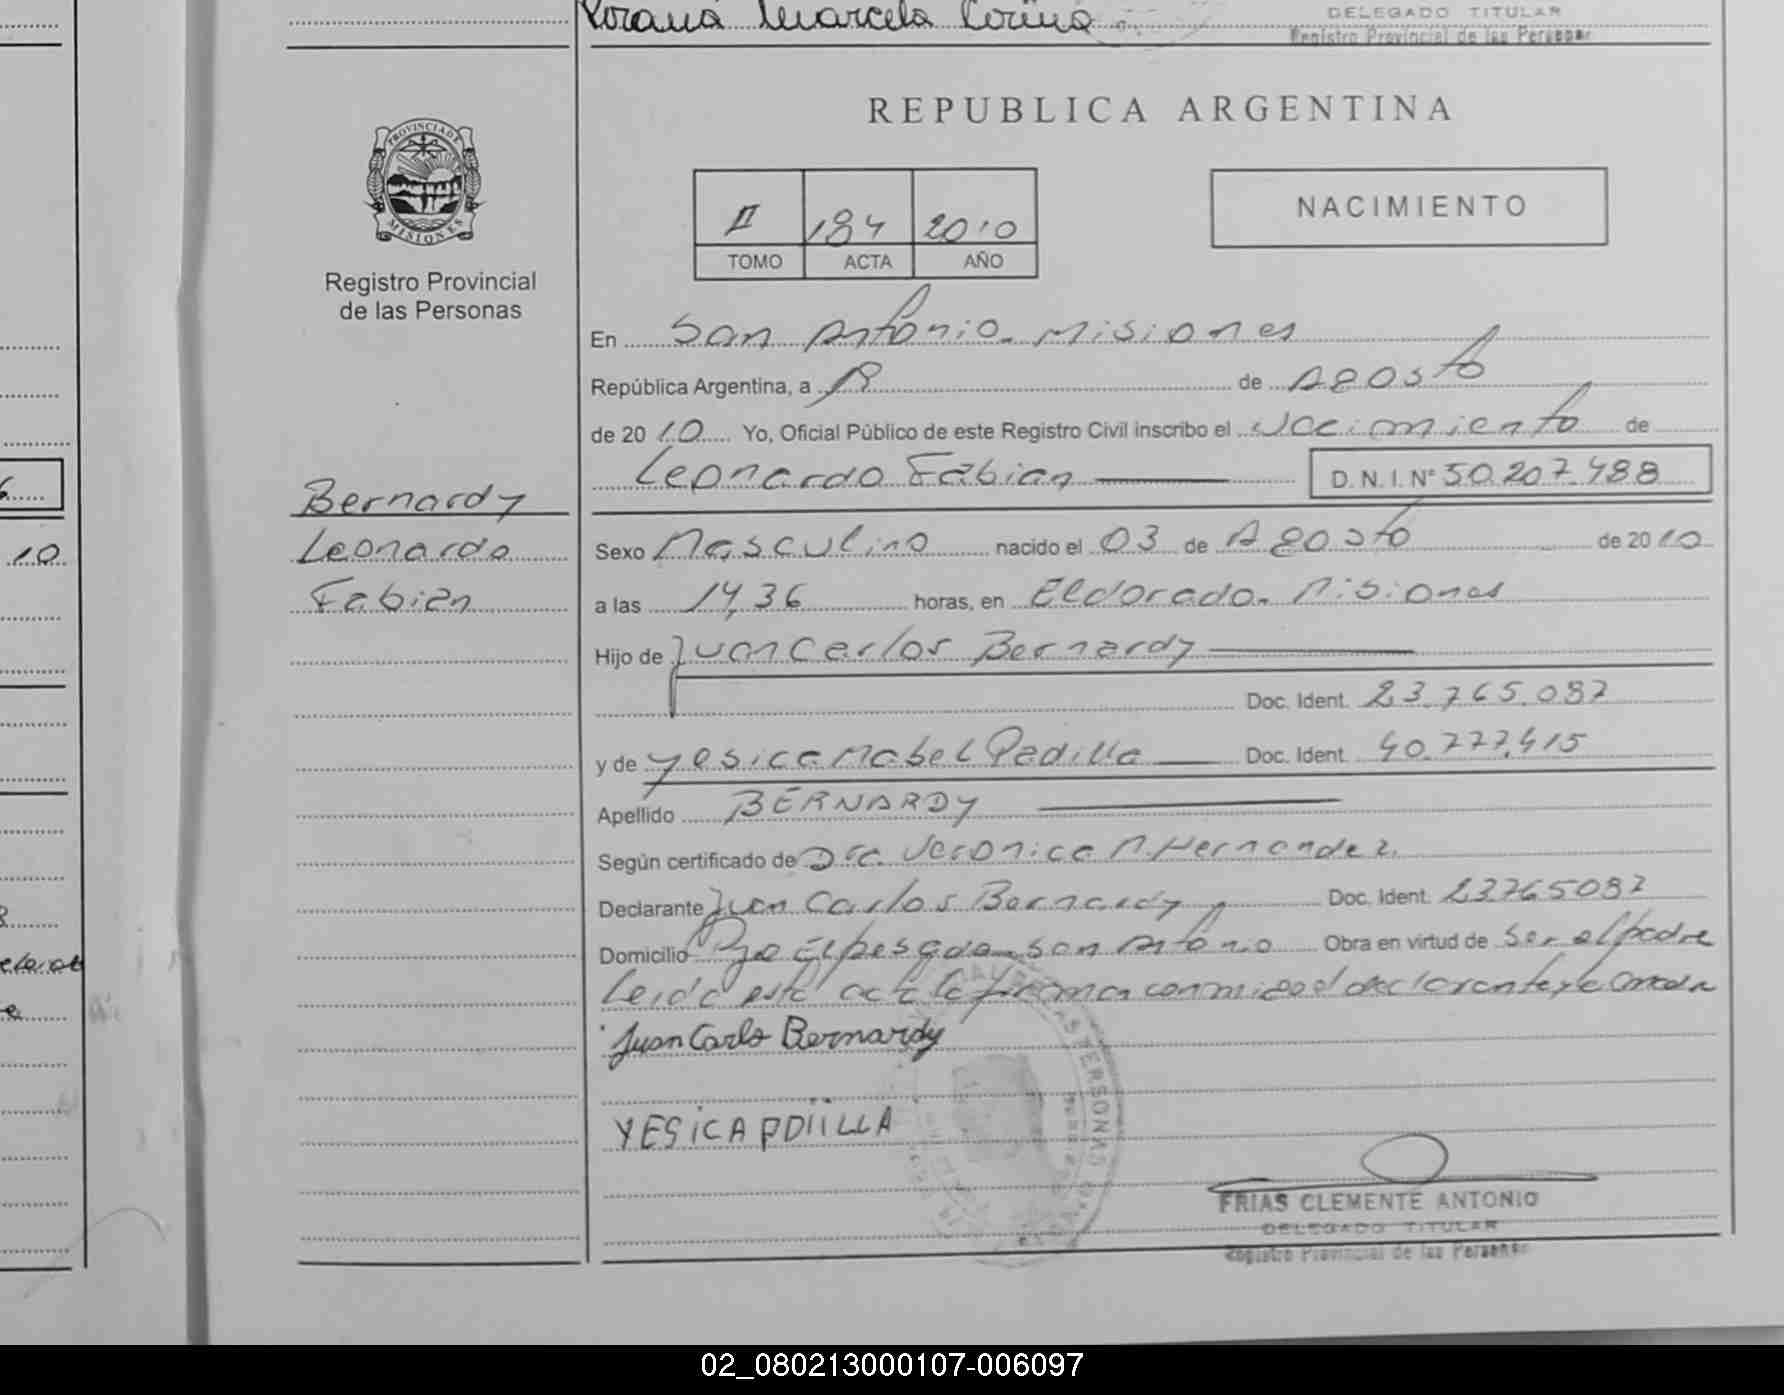 Marcela
DELEGADO TITULAR
Registro Provincial de las Personas
REPUBLICA ARGENTINA
PROVINCIA DE
MISIONES
II 184 2010
TOMO ACTA AÑO
NACIMIENTO
Registro Provincial
de las Personas
En San Antonio. Misiones
República Argentina, a de Agosto
de 2010 Yo, Oficial Público de este Registro Civil inscribo el Nacimiento de
Leonardo Fabian D.N.I. Nº 50.207.488
Bernardy
Leonardo
Fabian
10
Sexo Masculino nacido el 03 de Agosto de 2010
a las 14,36 horas, en Eldorado. Misiones
Hijo de Juan Carlos Bernardy
Doc. Ident. 23.765.087
y de Yesica Mabel Padilla Doc. Ident. 40.777.415
Apellido BERNARDY
Según certificado de Dra. Veronica M. Hernandez.
Declarante Juan Carlos Bernardy Doc. Ident. 23765087
Domicilio El pesado San Antonio Obra en virtud de ser el padre
Leida esta acta la firman conmigo el declarante y la
Juan Carlo Bernardy
YESiCA PDiiLLA
FRIAS CLEMENTE ANTONIO
DELEGADO TITULAR
Registro Provincial de las Personas
02_080213000107-006097